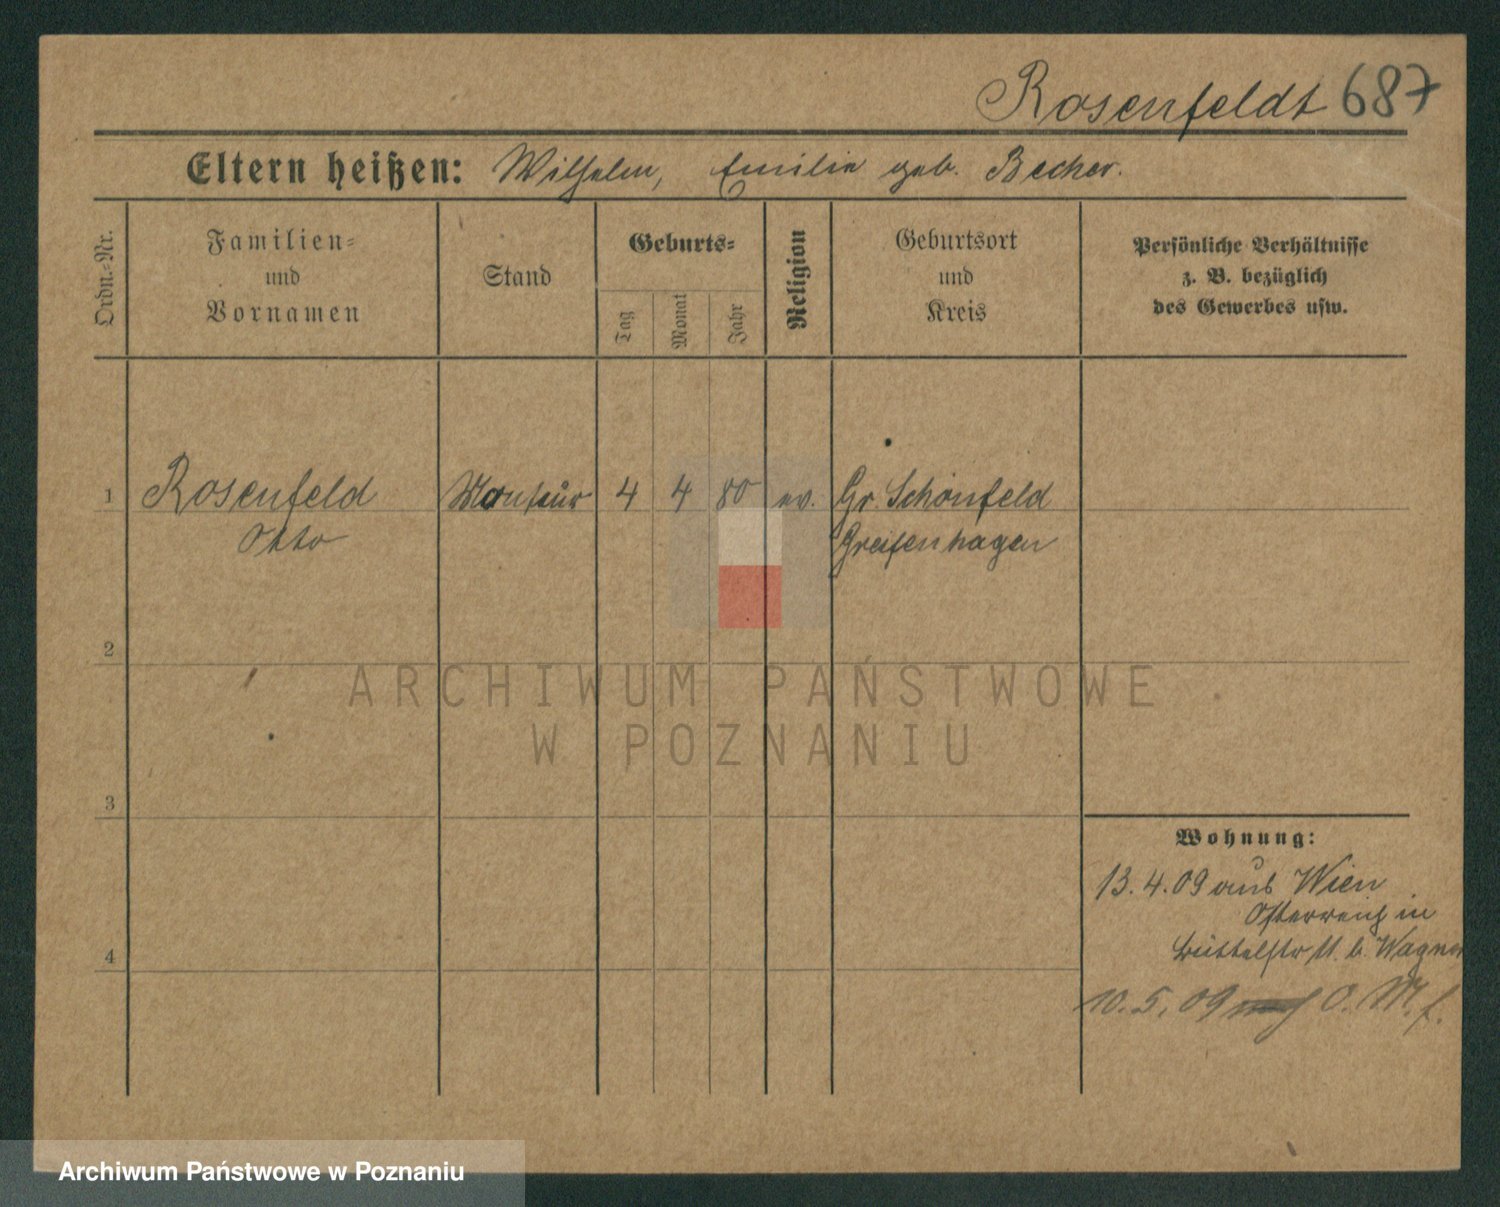 Rosenfeldt 687
Eltern heißen: Wilhelm, Emilie geb. Becher.
Ordn.-Nr.
Familien-
und
Vornamen
Stand
Geburts-
Tag
Monat
Jahr
Religion
Geburtsort
und
Kreis
Persönliche Verhältnisse
z. B. bezüglich
des Gewerbes usw.
1 Rosenfeld Monteur 4 4 80 ev. Gr. Schönfeld
Otto Greifenhagen
2
3
4
Wohnung:
13.4.09 aus Wien
Österreich in
11. b. Wagner
10.5.09 O. M. f.
ARCHIWUM PAŃSTWOWE
W POZNANIU
Archiwum Państwowe w Poznaniu